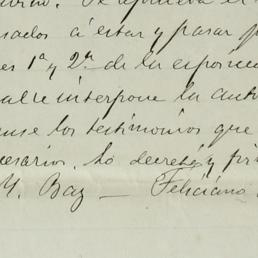 Se aprueba el
sados á estar y pasar p
es 1ª y 2ª de la esposici
interpone la auto
se los testimonios que
cesarios. Lo decretó y fir
M. Baz — Feliciano